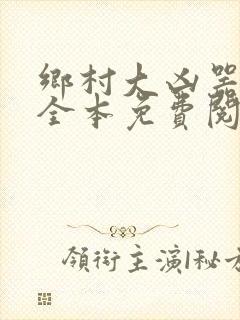 鄉村大凶器
全本免費閱
領銜主演|秘方